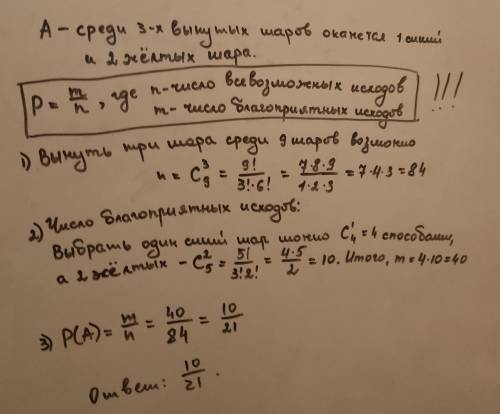 A – среди 3-х вынутых шаров окажется 1 синий
и 2 жёлтых шара.
P = m/n, где n-число всевозможных исходов
m-число благоприятных исходов !!!
1) Вынуть три шара среди 9 шаров возможно
n = C₉³ = 9!/(3!·6!) = (7·8·9)/(1·2·3) = 7·4·3 = 84
2) Число благоприятных исходов:
Выбрать один синий шар можно C₄¹ = 4 способами,
а 2 жёлтых – C₅² = 5!/(3!2!) = (4·5)/2 = 10. Итого, m = 4·10 = 40
3) P(A) = m/n = 40/84 = 10/21
Ответ: 10/21.